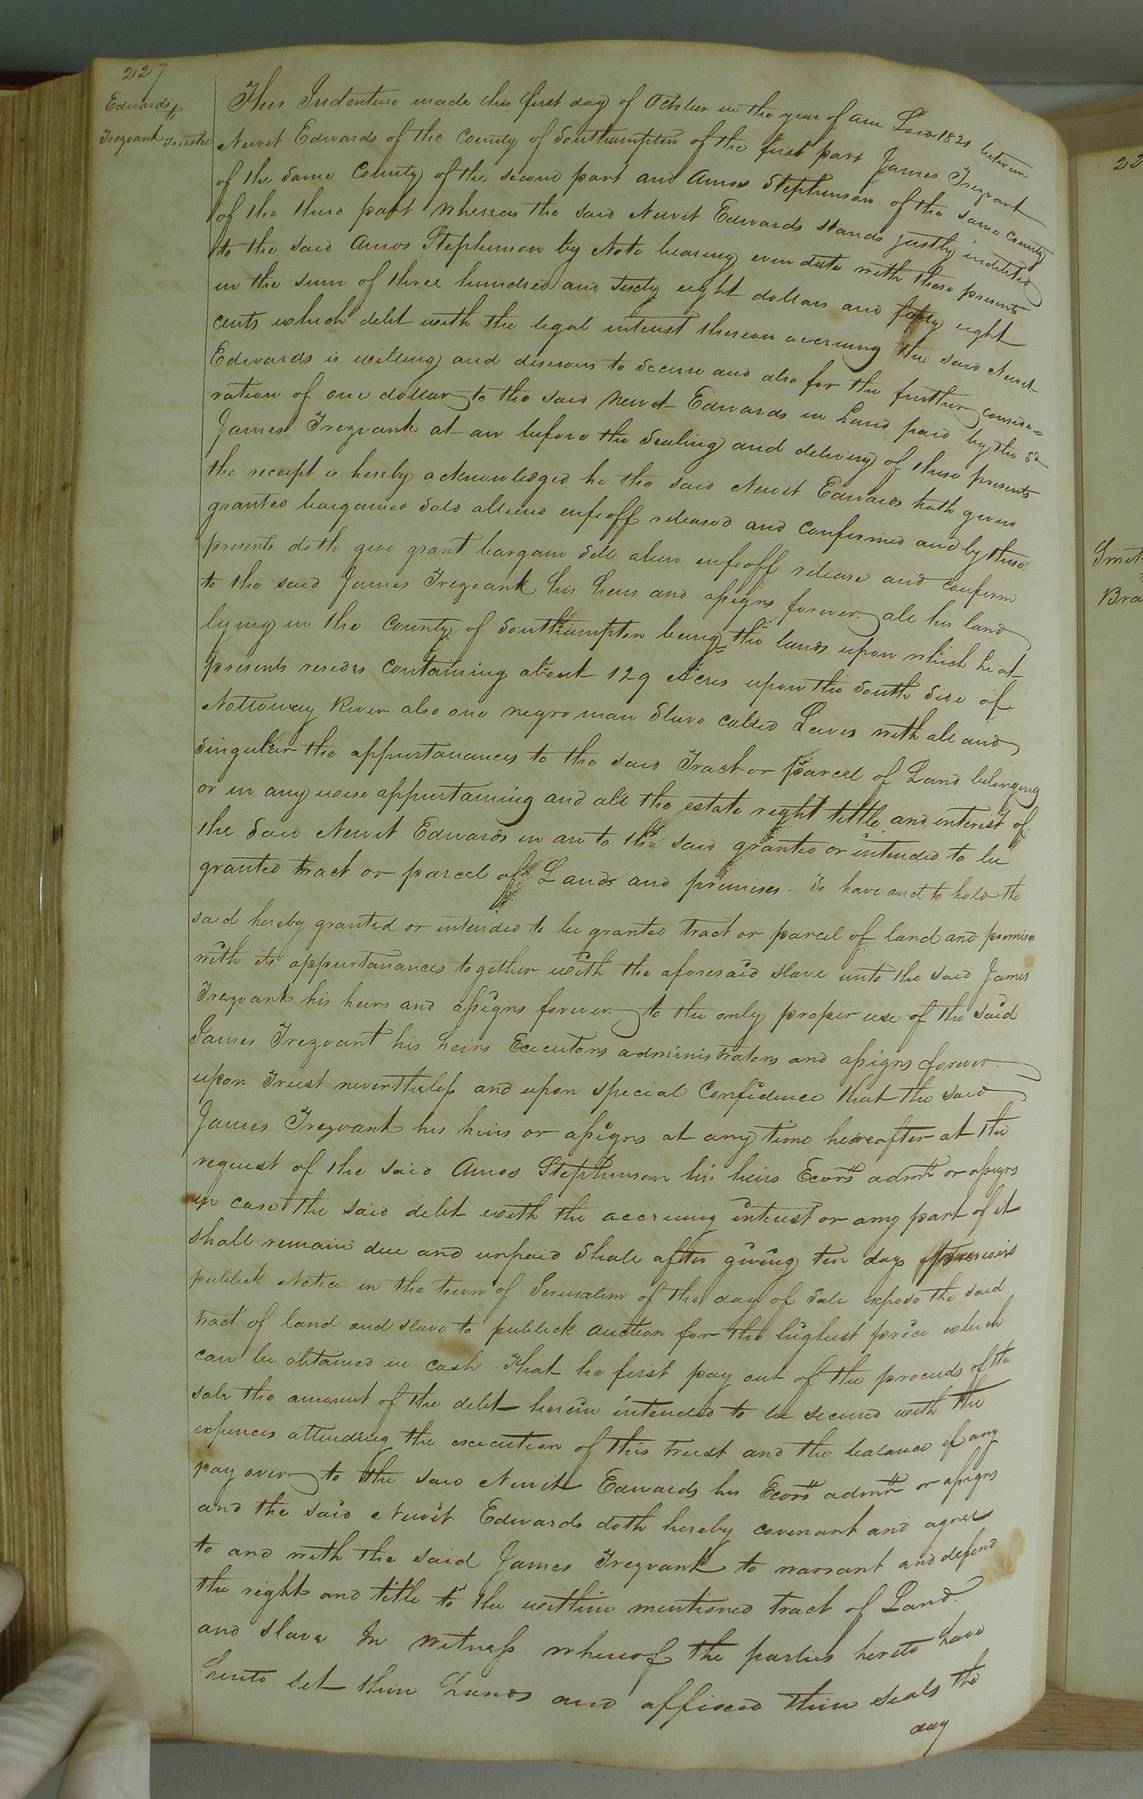 227
Edwards
to
Trezvant Trustee
This Indenture made this first day of October in the year of our Lord 1821 between
Newit Edwards of the County of Southampton of the first part James Trezvant
of the same County of the second part and Amos Stephenson of the same County
of the third part Whereas the said Newit Edwards stands justly indebted
to the said Amos Stephenson by Note bearing even date with these presents
in the sum of three hundred and sixty eight dollars and forty eight
cents which debt with the legal interest thereon accruing the said Newit
Edwards is willing and desirous to secure and also for the further conside=
ration of one dollar to the said Newit Edwards in hand paid by the sd
James Trezvant at or before the Sealing and delivery of these presents
the receipt is hereby acknowledged he the said Newit Edwards hath given
granted bargained Sold aliened enfeoff released and confirmed and by these
presents doth give grant bargain Sell alien enfeoff release and confirm
to the said James Trezvant his heirs and assigns forever all his land
lying in the County of Southampton being the lands upon which he at
presents resides containing about 129 Acres upon the South Side of
Nottoway River also one negro man Slave called Lewis with all and
Singular the appurtanances to the said Tract or parcel of Land belonging
or in any wise appurtaining and all the estate right tittle and interest of
the Said Newit Edwards in or to the said granted or intended to be
granted tract or parcel of Lands and premises. To have and to hold the
said hereby granted or intended to be granted tract or parcel of land and premise
with its appurtanances together with the aforesaid slave unto the said James
Trezvant his heirs and assigns forever to the only proper use of the said
James Trezvant his heirs Executors administrators and assigns forever.
upon Trust neverthelss and upon special Confidence that the said
James Trezvant his heirs or assigns at any time hereafter at the
request of the said Amos Stephenson his heirs Ecors admrs or assigns
in case the said debt with the accruing interest or any part of it
shall remain due and unpaid Shall after giving ten days previous
publick Notice in the town of Jerusalem of the day of Sale expose the said
tract of land and slave to publick auction for the highest price which
can be obtained in cash. That he first pay out of the proceeds of the
sale the amount of the debt herein intended to be secured with the
expences attending the execution of this trust and the balance if any
pay over to the said Newit Edwards his Ecors admrs or assigns
and the said Newit Edwards doth hereby covenant and agree
to and with the said James Trezvant to warrant and defend
the right and title to the within mentioned tract of Land.
and slave In Witness whereof the parties hereto have
hereto set their hands and affixed their seals the
day
22
Smit
Bra